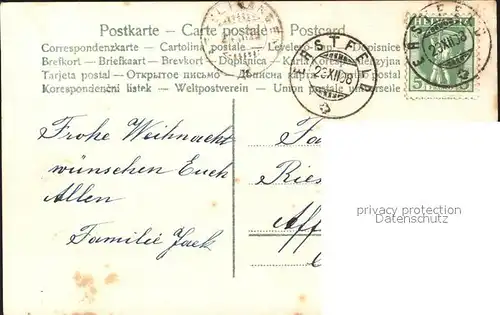 Postkarte - Carte postale - Postcard
Correspondenzkarte - Cartolina postale - Levelező-lap - Dopisnice
Brefkort - Briefkaart - Brevkort - Dopisnica - Karta
Tarjeta postal - Открытое письмо -
Korespondenční lístek - Weltpostverein - Union postale universelle
23 XII 08
23 XII 08
5
Frohe Weihnacht
wünschen Euch
Allen
Familie Jack
Fa
Ries
Aff
privacy protection
Datenschutz